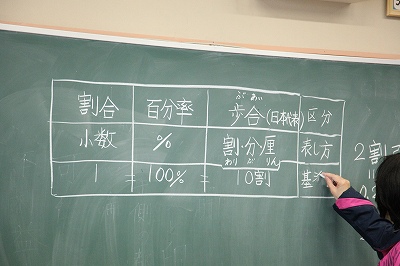 割合 百分率 歩合(日本代表) 区分
ぶあい
小数 % 割・分・厘 表し方
わり ぶ りん
1 = 100% = 10割 基
2割